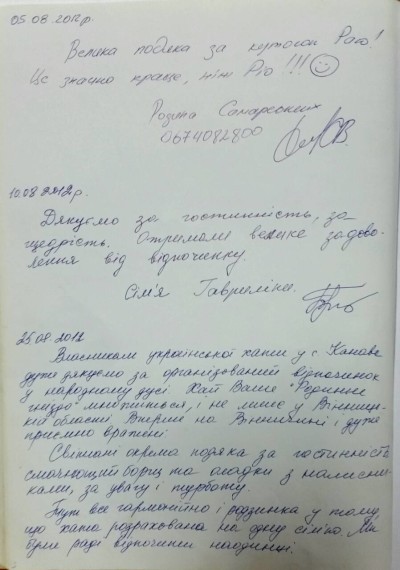 05.08.2012р.
Велика подяка за куточок Раю!
Це значно краще, ніж Ріо!!!
Родина Самарських
0674082800
10.08.2012р.
Дякуємо за гостинність, за
щедрість. Отримали велике задово-
лення від відпочинку.
Сім'я Гавриліни.
25.08.2012
Власникам української хати у с. Канава
дуже дякуємо за організований відпочинок
у народному дусі. Хай Ваше "Родинне
гніздо" множиться, і не лише у Вінниць-
кій області. Вперше на Вінничині і дуже
приємно вражені.
Світлані окрема подяка за гостинність
смачнющий борщ та оладки з налисни-
ками, за увагу і турботу.
Тут все гармонійно і родзинка у тому,
що хата розрахована на одну сім'ю. Ми
були раді відпочити наодинці.